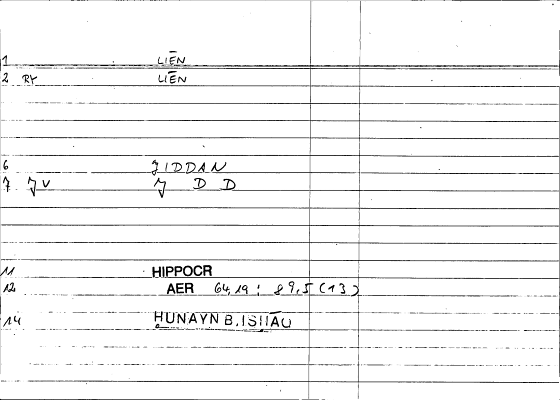 1 LIĒN
2 RY LIĒN
6 JIDDAN
7 JV J D D
11 HIPPOCR
12 AER 64,19 : 89,5 (13)
14 ḤUNAYN B. ISḤĀQ